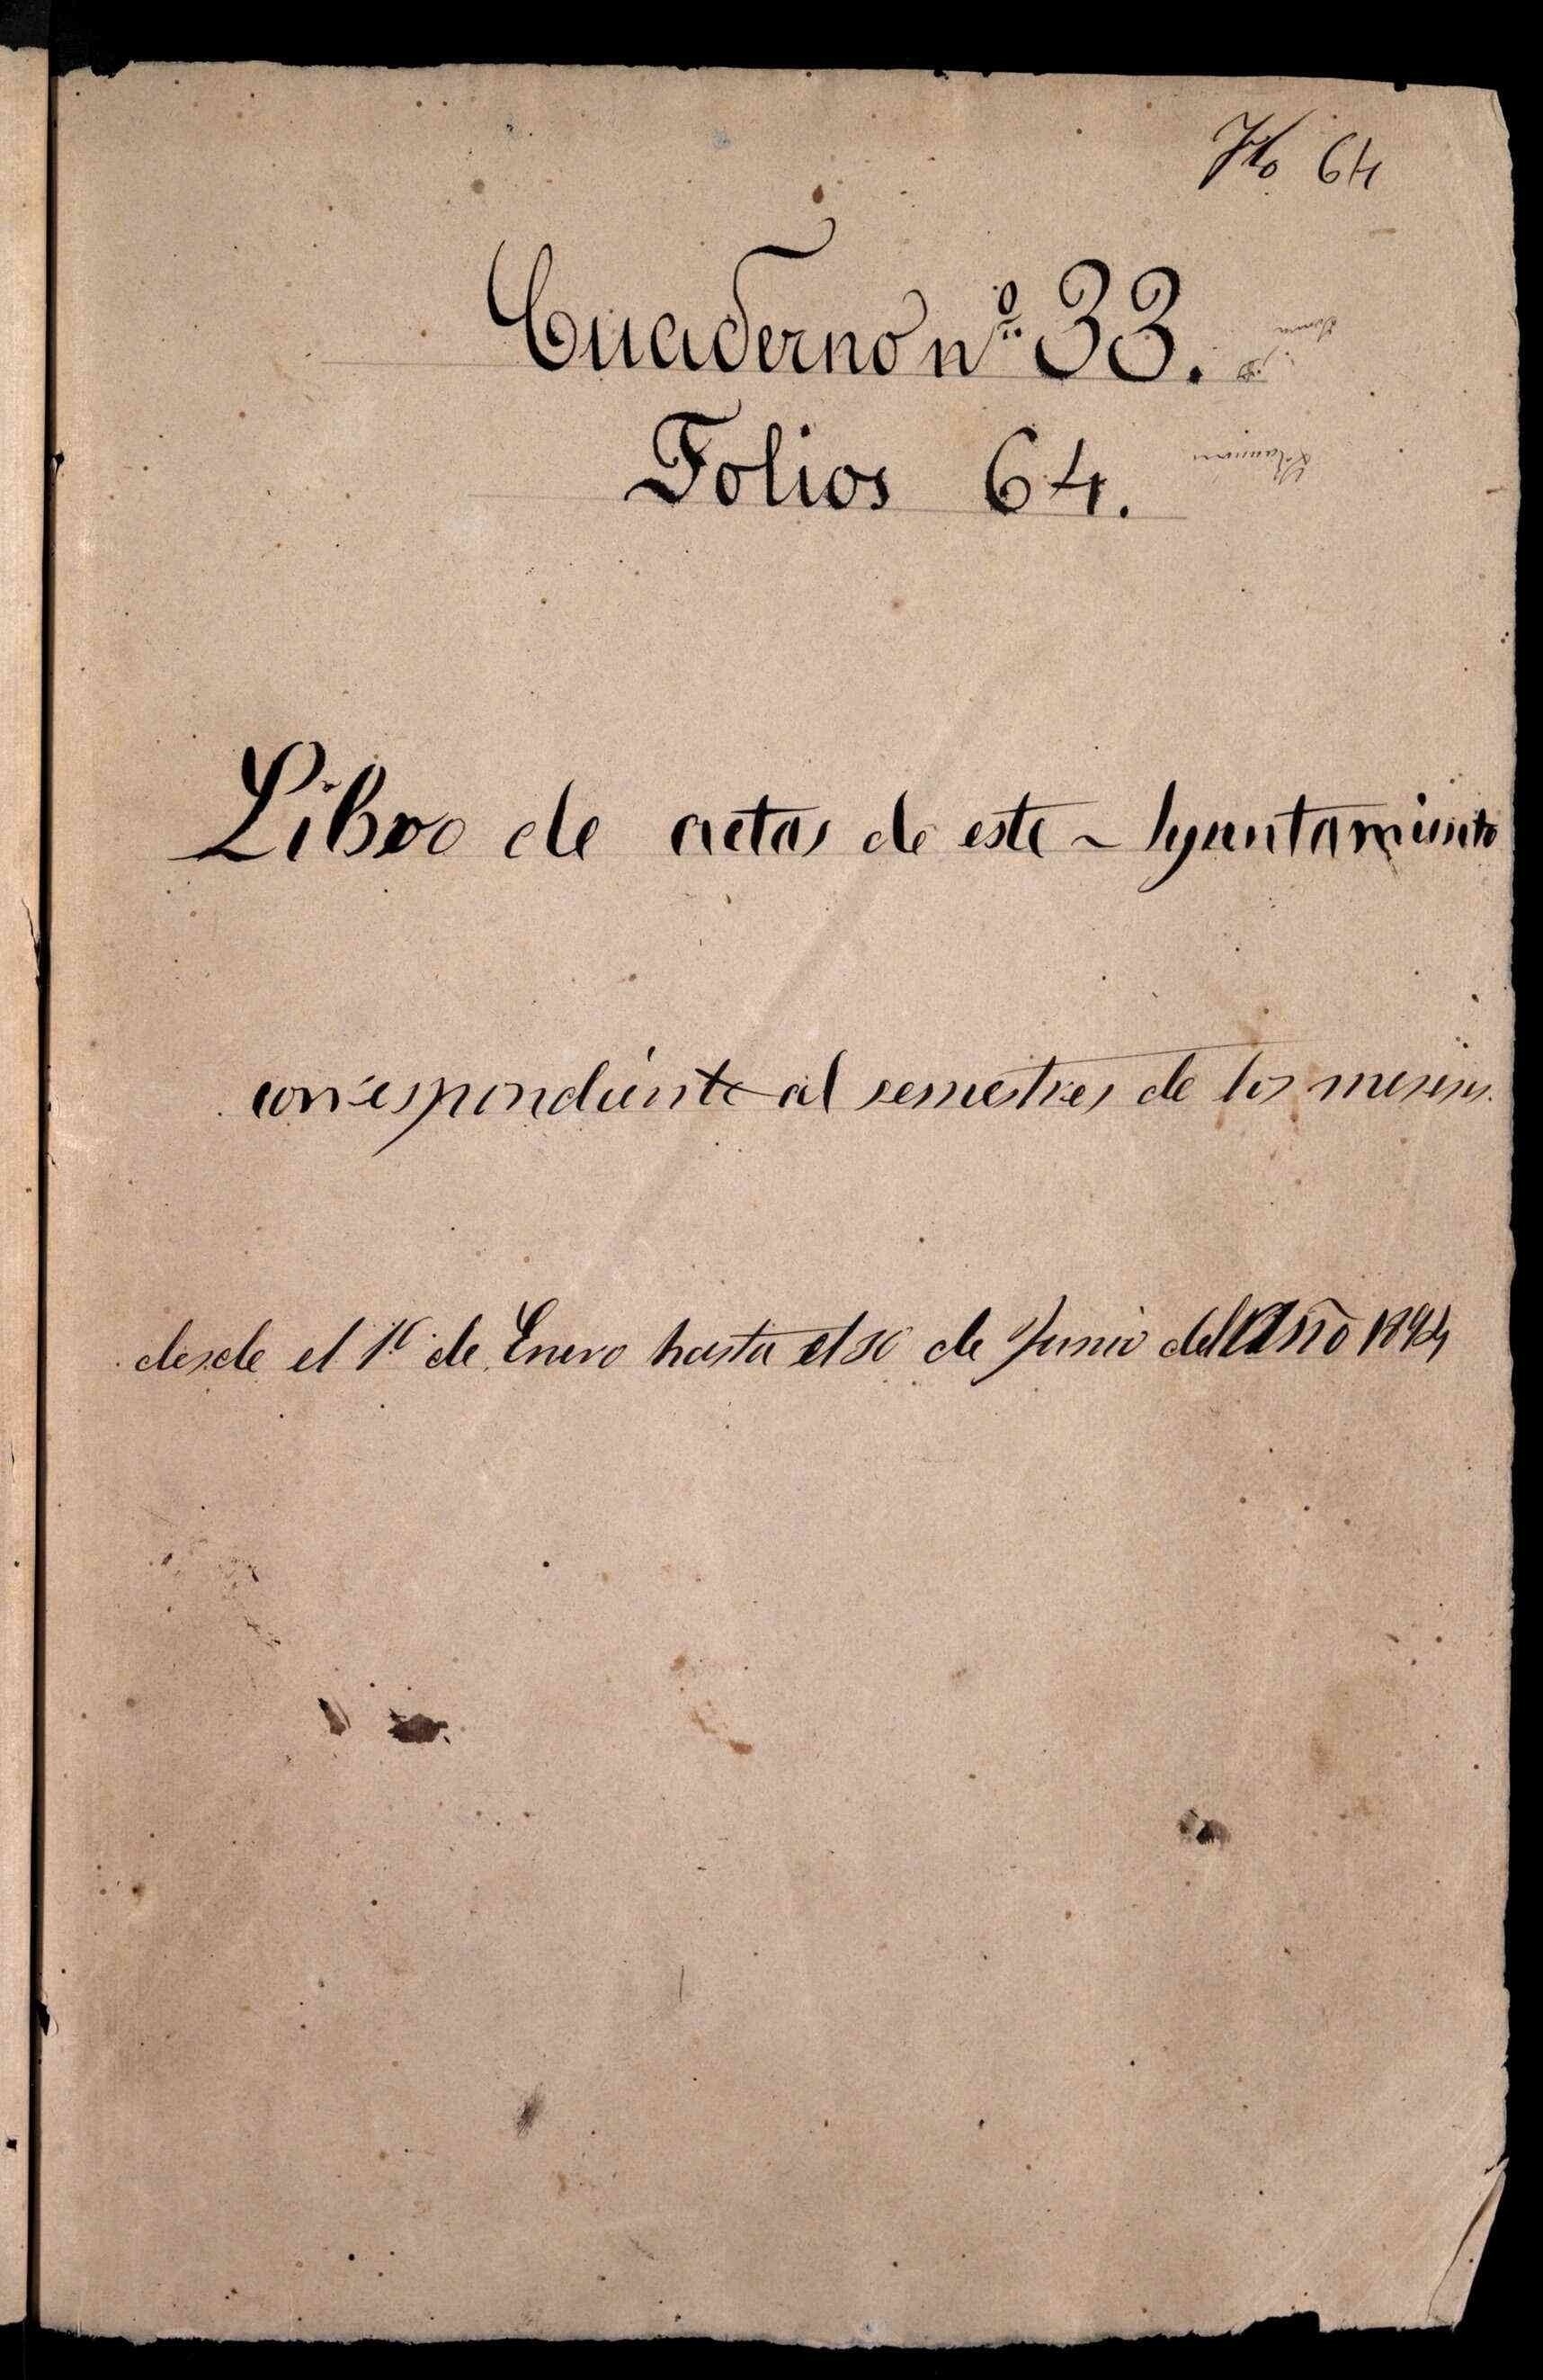 Flo 64
Cuaderno nº 33.
Folios 64.
Libro de actas de este Ayuntamiento
correspondiente al semestres de los meses.
desde el 1º de Enero hasta el 30 de Junio del Año 1894